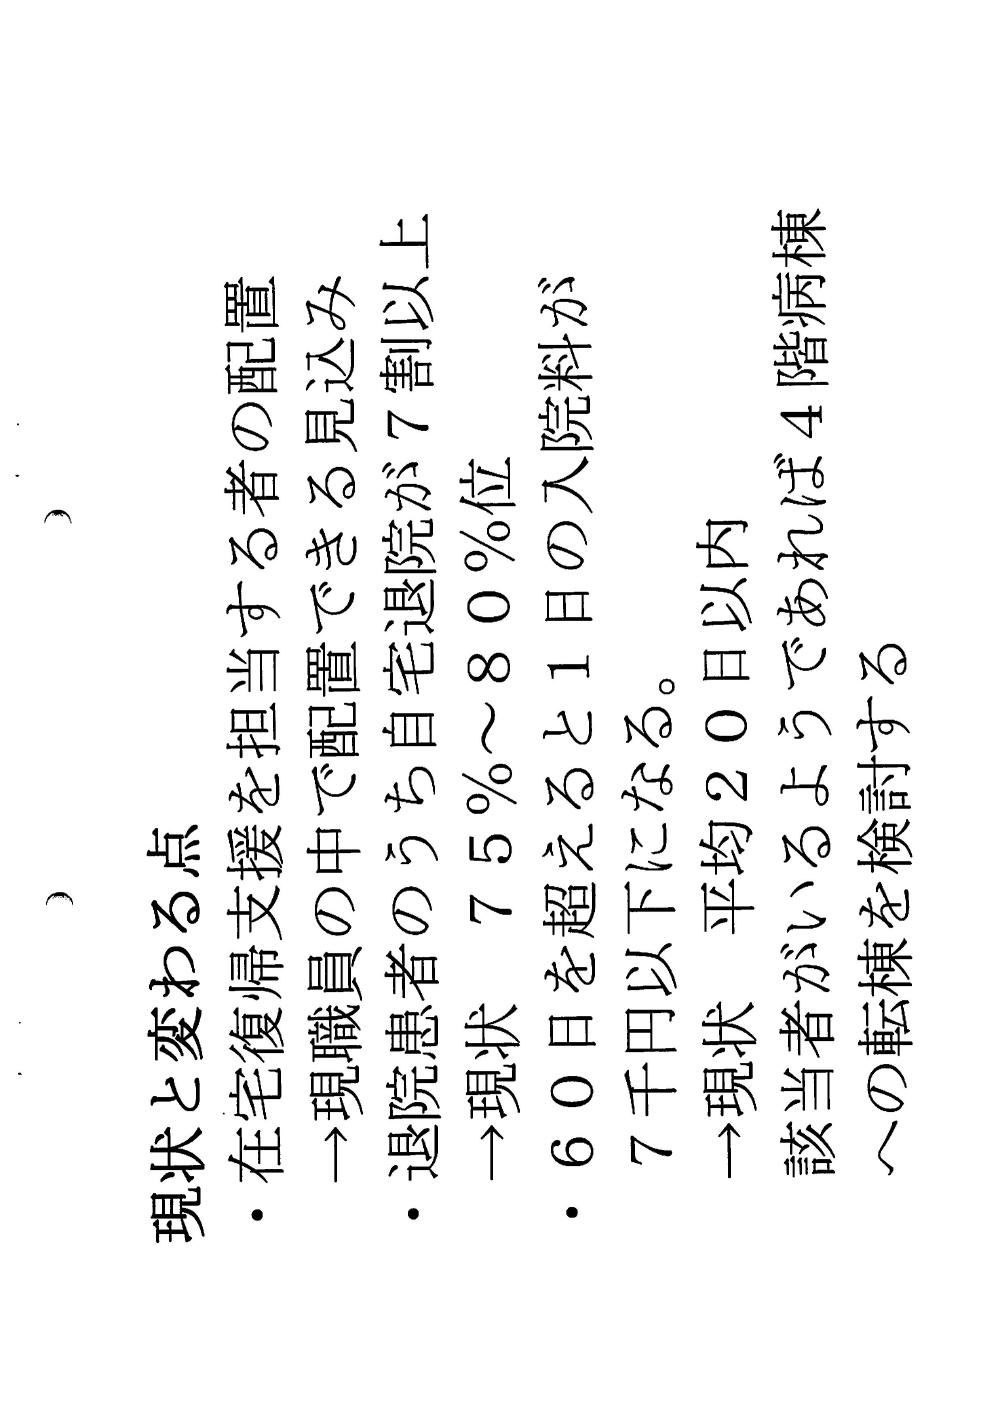 現状と変わる点
・在宅復帰支援を担当する者の配置
→現職員の中で配置できる見込み
・退院患者のうち自宅退院が７割以上
→現状　７５％～８０％位
・６０日を超えると１日の入院料が
７千円以下になる。
→現状　平均２０日以内
該当者がいるようであれば４階病棟
への転棟を検討する